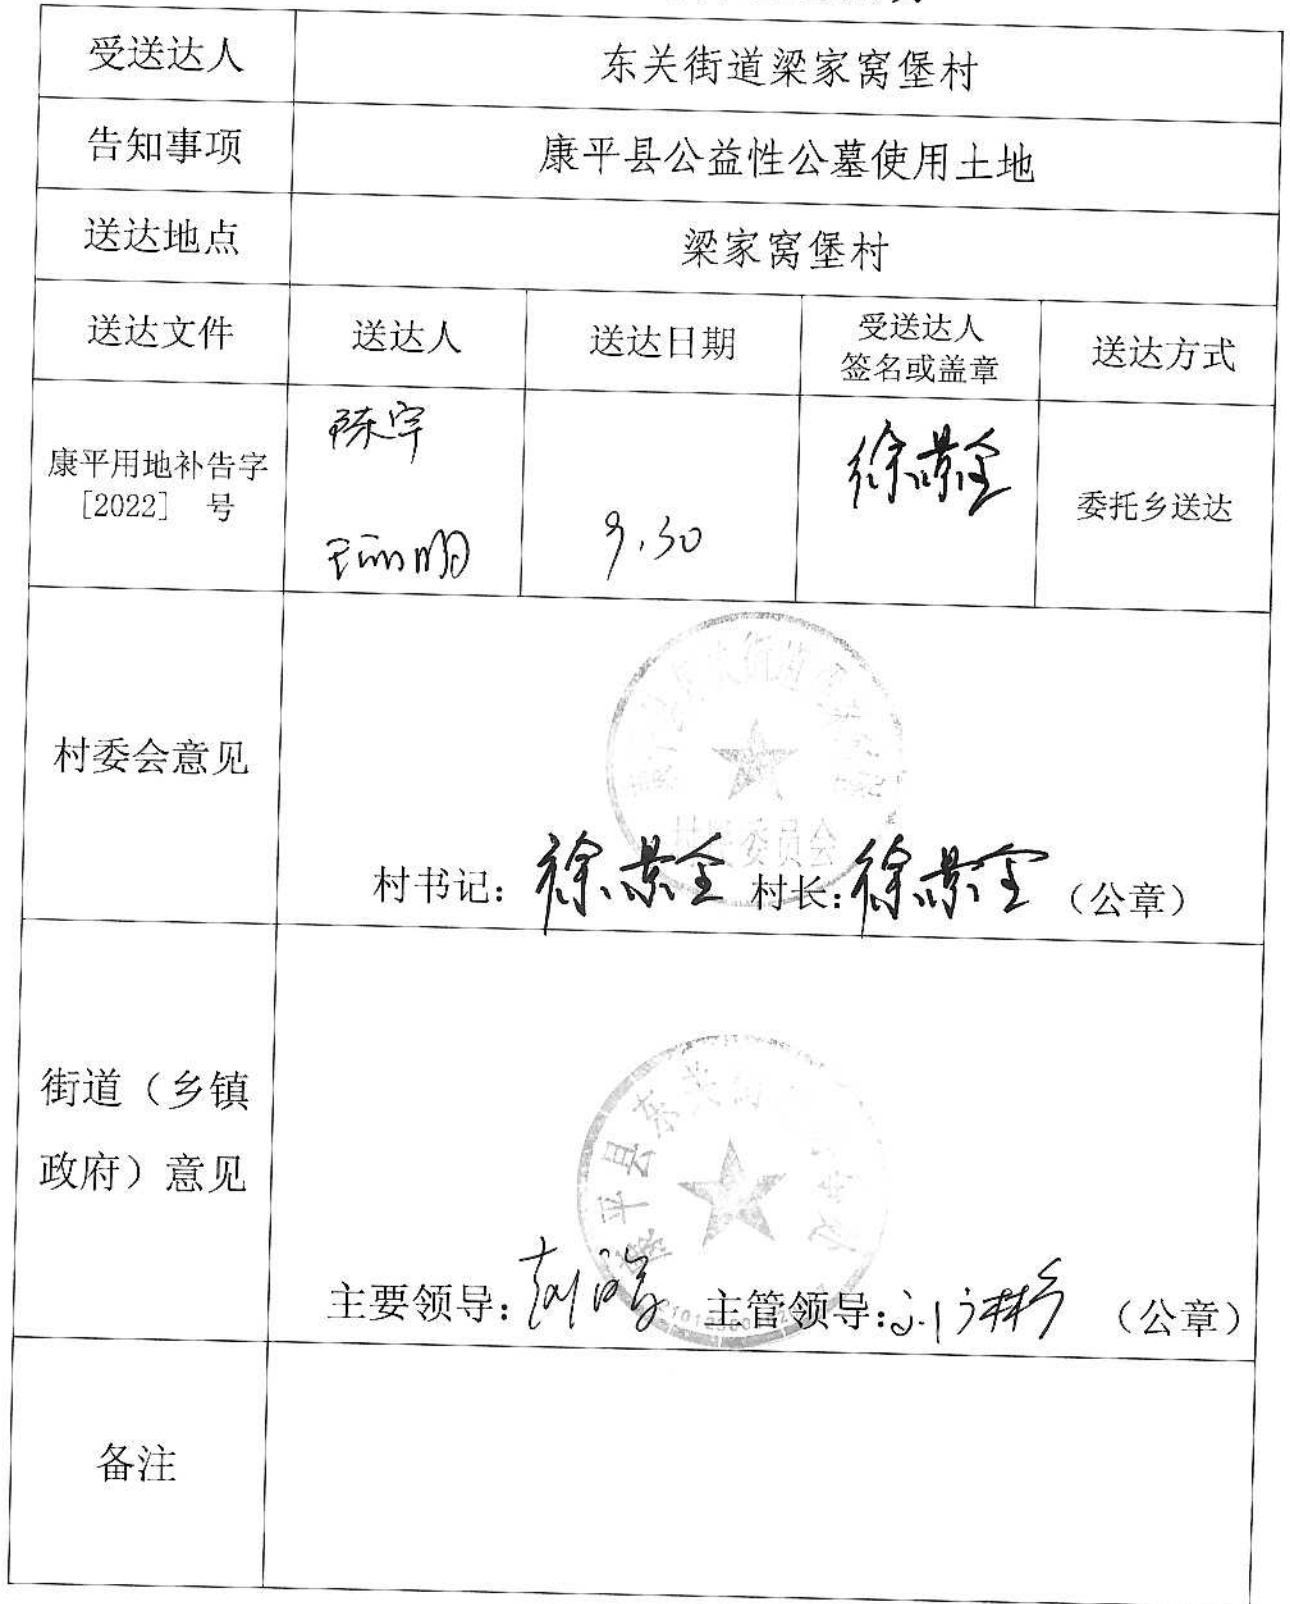 受送达人
东关街道梁家窝堡村
告知事项
康平县公益性公墓使用土地
送达地点
梁家窝堡村
送达文件
送达人
送达日期
受送达人
签名或盖章
送达方式
康平用地补告字
[2022] 号
陈宇
9.30
徐景全
委托乡送达
村委会意见
村书记：徐景全 村长：徐景全（公章）
街道（乡镇
政府）意见
主要领导： 主管领导： （公章）
备注